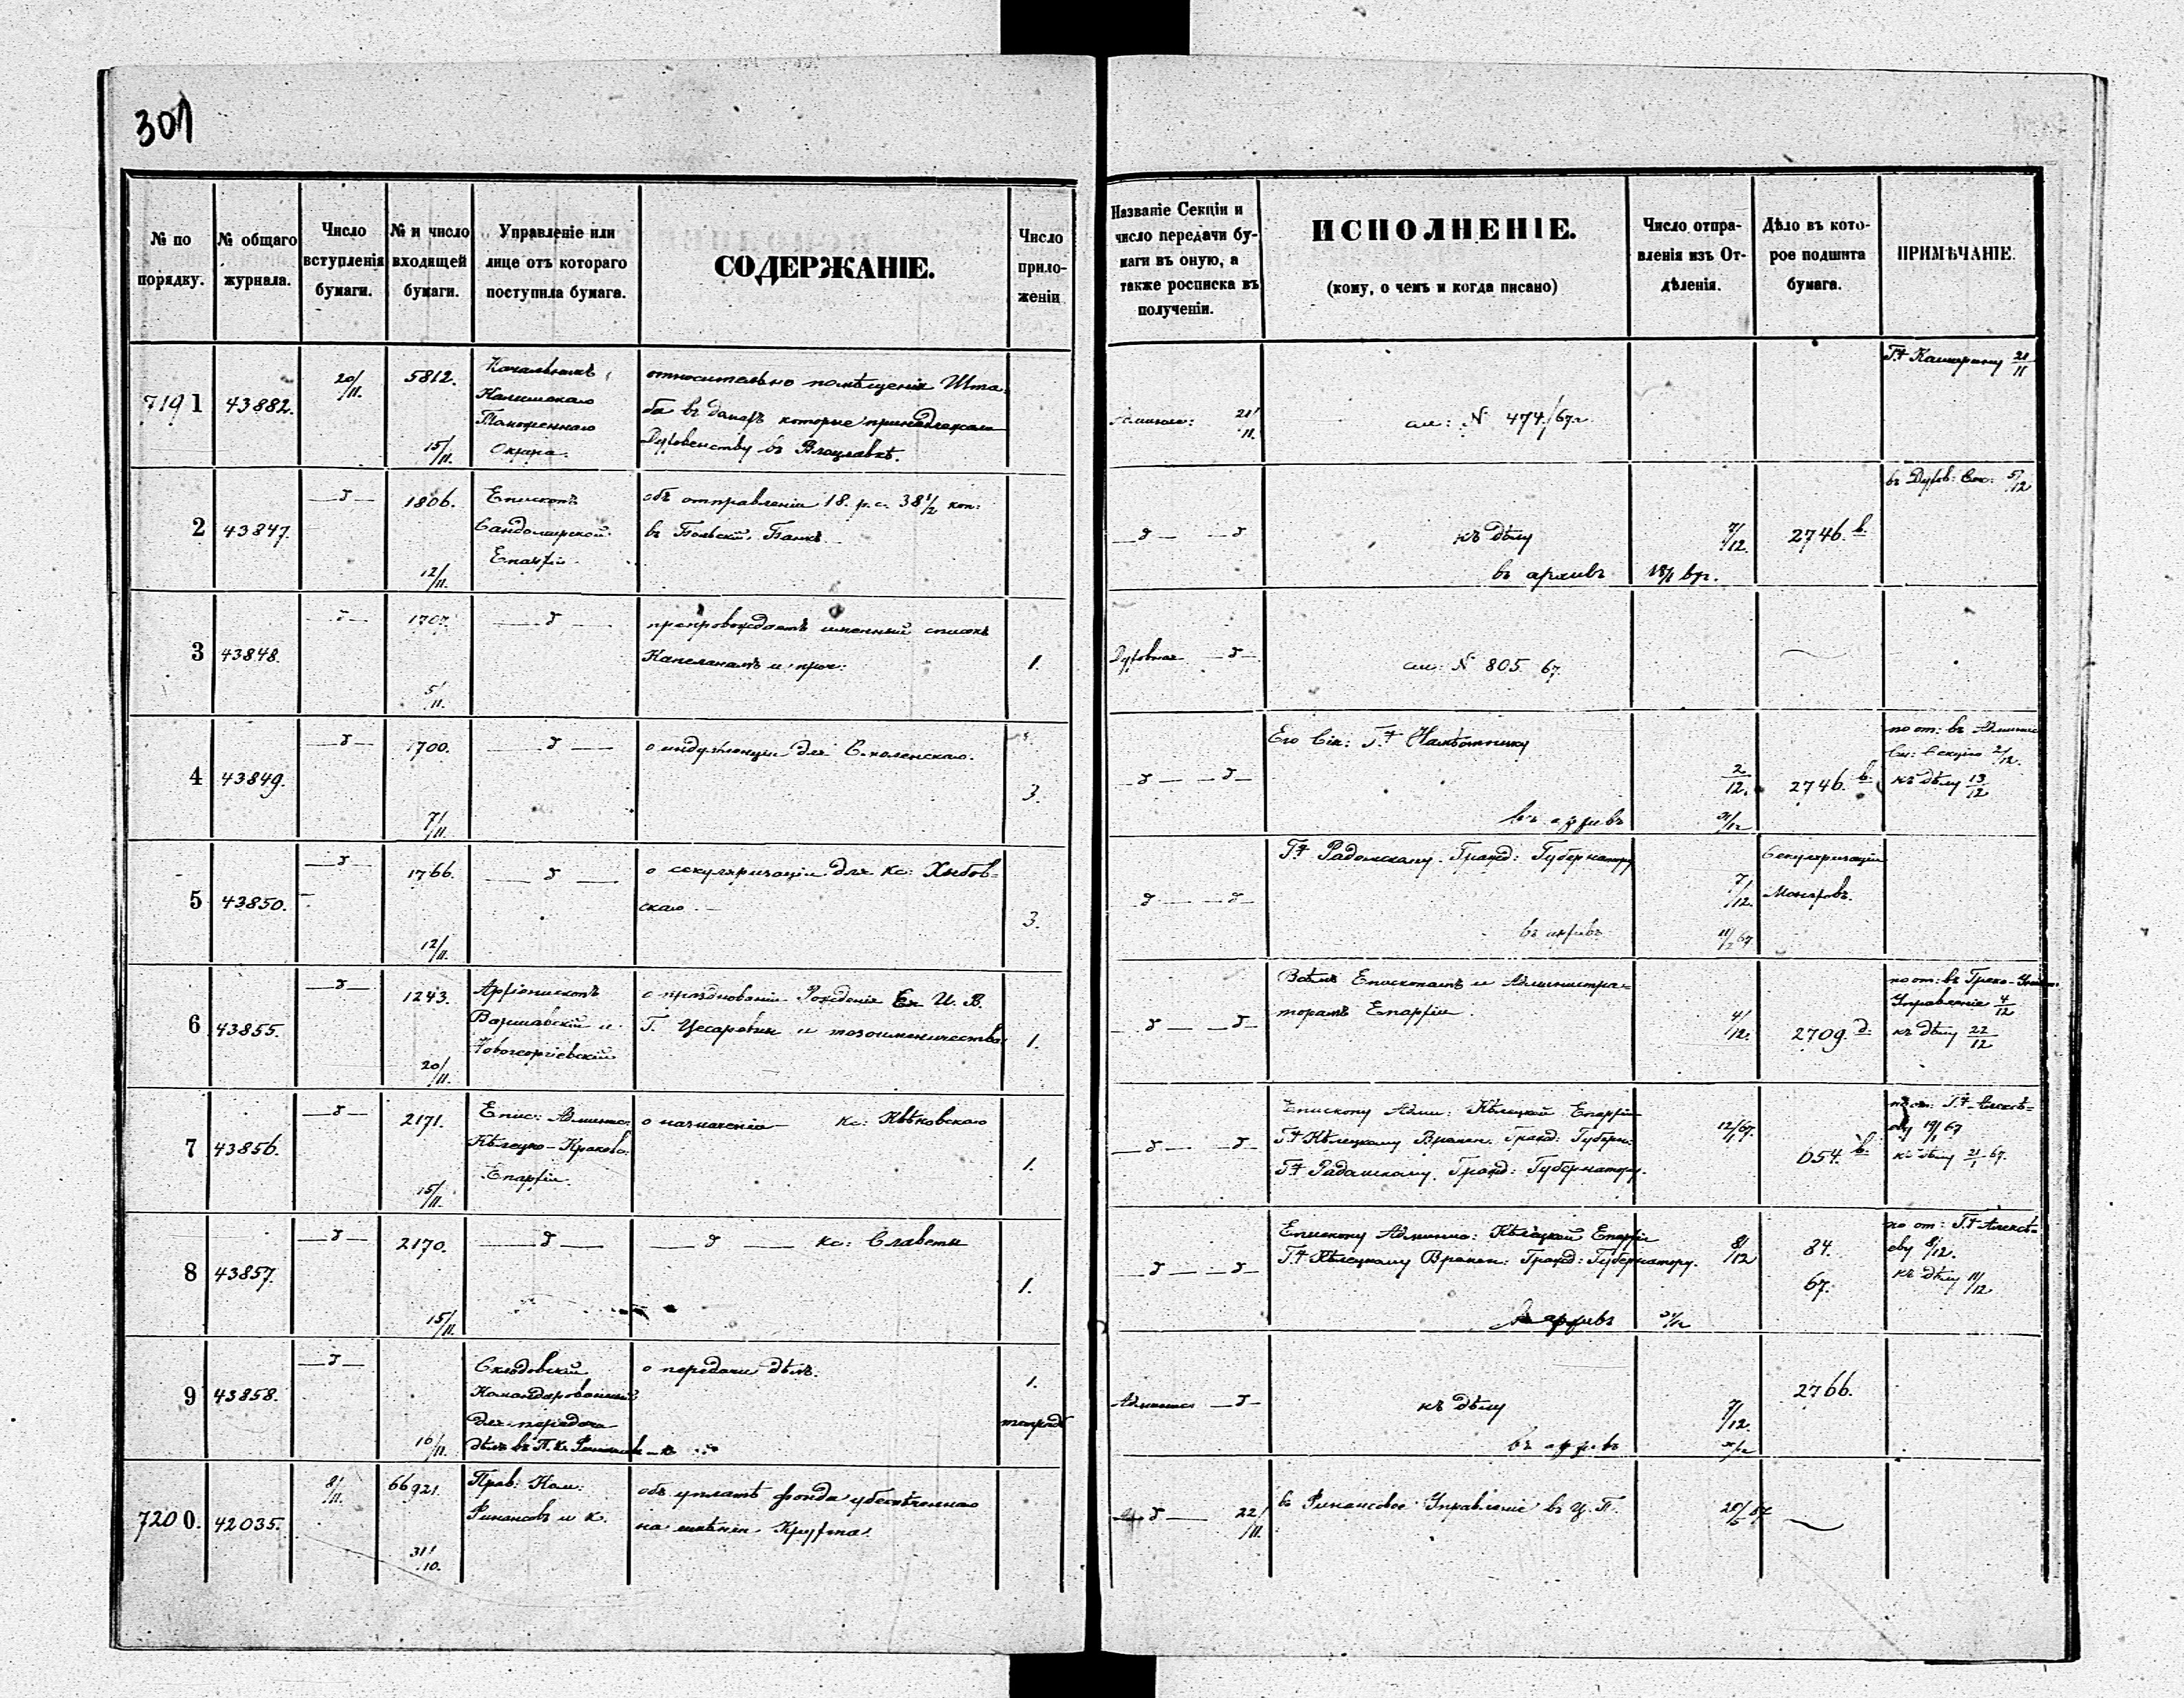 301
№ по порядку.
№ общаго журнала.
Число вступленія бумаги.
№ и число входящей бумаги.
Управленіе или лице отъ котораго поступила бумага.
СОДЕРЖАНІЕ.
Число приложеніи
Названіе Секціи и число передачи бумаги въ оную, а также росписка въ полученіи.
ИСПОЛНЕНІЕ.
(кому, о чемъ и когда писано)
Число отправленія изъ Отдѣленія.
Дѣло въ которое подшита бумага.
ПРИМѢЧАНІЕ.
7191 43882. 20/11. 5812. 15/11.
Начальникъ
Калишскаго
Таможеннаго
Округа.
относительно помѣщенія Шта-
ба въ домахъ которые принадлежали
Духовенству въ Влоцлавкѣ.
21/11.
см: № 474/67 г.
21/11
2 43847. —d— 1806. 12/11.
Епископъ
Сандомирской
Епархіи
объ отправленіи 18. р. с. 38 1/2 коп:
въ Польскій Банкъ.
—d— —d
къ дѣлу 7/12. 2746. в.
въ архивъ
въ Духов: Сек: 5/12
3 43848. —d— 1707. 5/11. —d—
препровождаетъ именный списокъ
Капеланамъ и проч:
1.
Духовная —d—
см: № 805. 67.
4 43849. —d— 1700. 7/11. —d—
о индульгенціи для Смоленскаго.
3.
—d— —d—
Его Сія: Г. Намѣстнику
2/12. 2746. в.
въ архивъ 31/12
по от: въ Админис
Секцію 2/12.
къ дѣлу 13/12
5 43850. —d— 1766. 12/11. —d—
о секуляризаціи для Кс: Хыбов-
скаго
3.
—d— —d—
Г. Радомскому Гражд: Губернатору
7/12.
Секуляризаціи
Монаховъ.
въ архивъ
6 43855. —d— 1243. 20/11.
Архіепископъ
Варшавскій и
Новогеоргіевскій
о празднованіи Рожденія Ея И. В.
Г. Цесаревны и тезоименичества
1.
—d— —d—
Всѣмъ Епископамъ и Администра-
торамъ Епархіи.
4/12. 2709. д.
по от: въ Греко-Уніат:
Управленіе 4/12
къ дѣлу 22/12
7 43856. —d— 2171. 15/11.
Епис: Админис:
Кѣлецко-Краков:
Епархіи.
о назначеніи Кс:
1.
—d— —d—
Епископу Адми: Кѣлецкой Епархіи
Г. Кѣлецкому Времен. Гражд: Губерн:
Г. Радомскому Гражд: Губернатору.
12/1 67. 654. в.
по от: Г. Алексѣ-
еву 19/1 67
къ дѣлу 21/1 67.
8 43857. —d— 2170. 15/11. —d—
—d— Кс: Славеты
1.
—d— —d—
Епископу Админис: Кѣлецкой Епархіи
Г. Кѣлецкому Времен: Гражд: Губернатору.
8/12 84.
67.
въ архивъ 31/12
по от: Г. Алексѣ-
еву 8/12.
къ дѣлу 11/12
9 43858. —d— 16/11.
Командированный
для передачи
дѣлъ въ П. К. Финансовъ
о передачи дѣлъ.
1.
тетрадь
Админис —d—
къ дѣлу 7/12. 2766.
въ архивъ 31/12
7200. 42035. 8/11. 66921. 31/10.
Прав: Ком:
Финансовъ и К.
объ уплатѣ фонда убезпеченнаго
на имѣніи
—d— 22/11.
въ Финансовое Управленіе въ Ц. П.